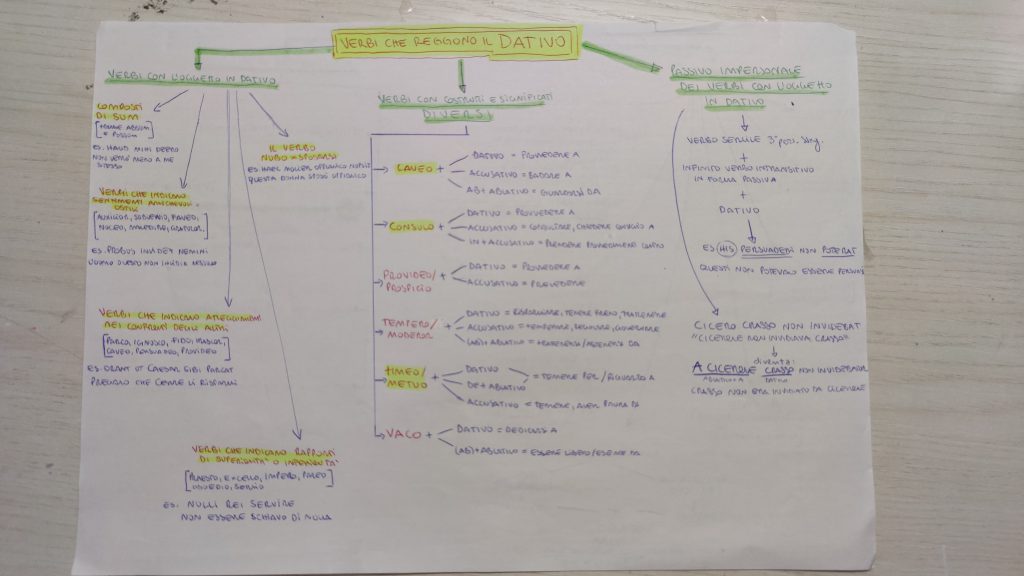 VERBI CHE REGGONO IL DATIVO
VERBI CON L'OGGETTO IN DATIVO
COMPOSTI
DI SUM
[TRANNE ABSUM
E POSSUM]
ES. HAUD MIHI DEERO
NON VERRÒ MENO A ME
STESSO
VERBI CHE INDICANO
SENTIMENTI AMICHEVOLI O
OSTILI
NOCEO, MALEDICO, GRATULOR,
ES. PROBUS INVIDET NEMINI
L'UOMO ONESTO NON INVIDIA NESSUNO
VERBI CHE INDICANO ATTEGGIAMENTI
NEI CONFRONTI DEGLI ALTRI
[PARCO, IGNOSCO, FIDO,
CAVEO, PERSUADEO, PROVIDEO]
ES. ORANT UT CAESAR SIBI PARCAT
PREGANO CHE CESARE LI RISPARMI
VERBI CHE INDICANO RAPPORTI
DI SUPERIORITÀ O INFERIORITÀ
[PRAESTO, EXCELLO, IMPERO, PAREO
OBOEDIO, SERVIO]
ES. NULLI REI SERVIRE
NON ESSERE SCHIAVO DI NULLA
IL VERBO
NUBO = SPOSARSI
ES. HAEC MULIER OPPIANICO NUPSIT
QUESTA DONNA SPOSÒ OPPIANICO
VERBI CON COSTRUTTI E SIGNIFICATI
DIVERSI
CAVEO +
DATIVO = PROVVEDERE A
ACCUSATIVO = BADARE A
AB + ABLATIVO = GUARDARSI DA
CONSULO +
DATIVO = PROVVEDERE A
ACCUSATIVO = CONSULTARE, CHIEDERE CONSIGLIO A
IN + ACCUSATIVO = PRENDERE PROVVEDIMENTI CONTRO
PROVIDEO/
PROSPICIO +
DATIVO = PROVVEDERE A
ACCUSATIVO = PREVEDERE
TEMPERO/
MODEROR +
DATIVO = MODERARE, TENERE FRENO, TRATTENERE
ACCUSATIVO = TEMPERARE, REGOLARE, GOVERNARE
(AB) + ABLATIVO = TRATTENERSI/ASTENERSI DA
TIMEO/
METUO +
DATIVO
DE + ABLATIVO
= TEMERE PER / RIGUARDO A
ACCUSATIVO = TEMERE, AVER PAURA DI
VACO +
DATIVO = DEDICARSI A
(AB) + ABLATIVO = ESSERE LIBERO/ESENTE DA
PASSIVO IMPERSONALE
DEI VERBI CON L'OGGETTO
IN DATIVO
VERBO SERVILE 3ª pers. sing.
+
INFINITO VERBO INTRANSITIVO
IN FORMA PASSIVA
+
DATIVO
ES HIS PERSUADERI NON POTERAT
QUESTI NON POTEVANO ESSERE PERSUASI
CICERO CRASSO NON INVIDEBAT
"CICERONE NON INVIDIAVA CRASSO"
diventa:
A CICERONE CRASSO NON INVIDEBATUR
ABLATIVO A DATIVO
CRASSO NON ERA INVIDIATO DA CICERONE